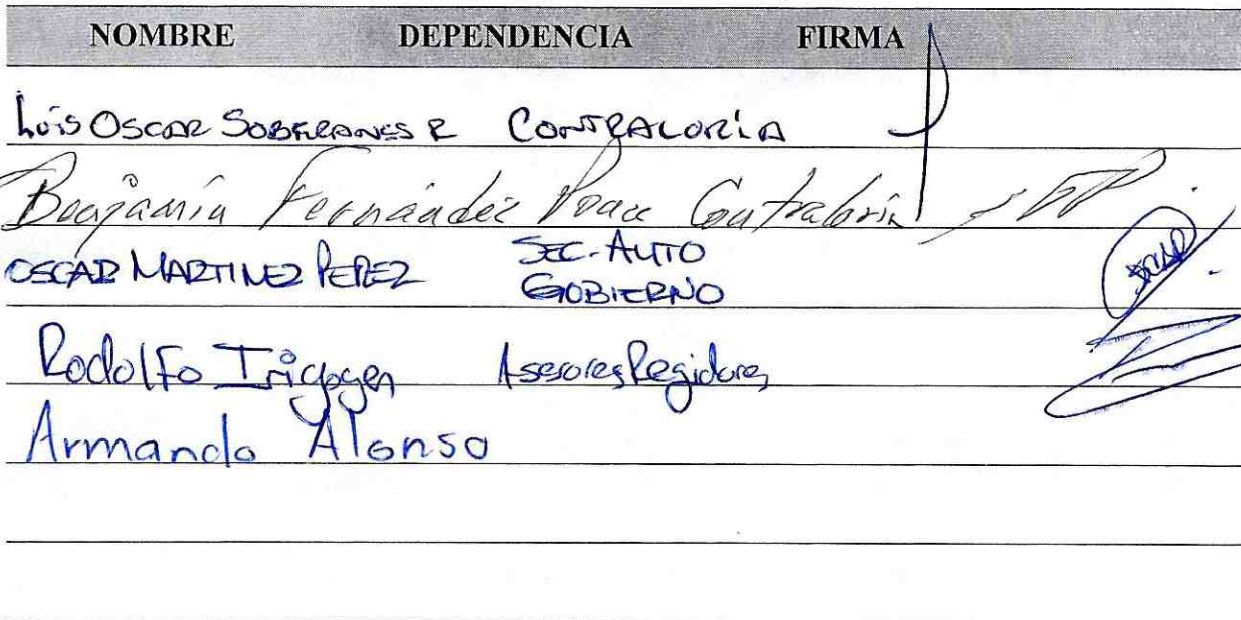 NOMBRE DEPENDENCIA FIRMA
Luis OSCAR SOBERANES R CONTRALORÍA
Benjamín Fernández Ponce Contraloría
OSCAR MARTINEZ PEREZ SEC. AUTO
GOBIERNO
Rodolfo Irigoyen Asesores Regidores
Armando Alonso